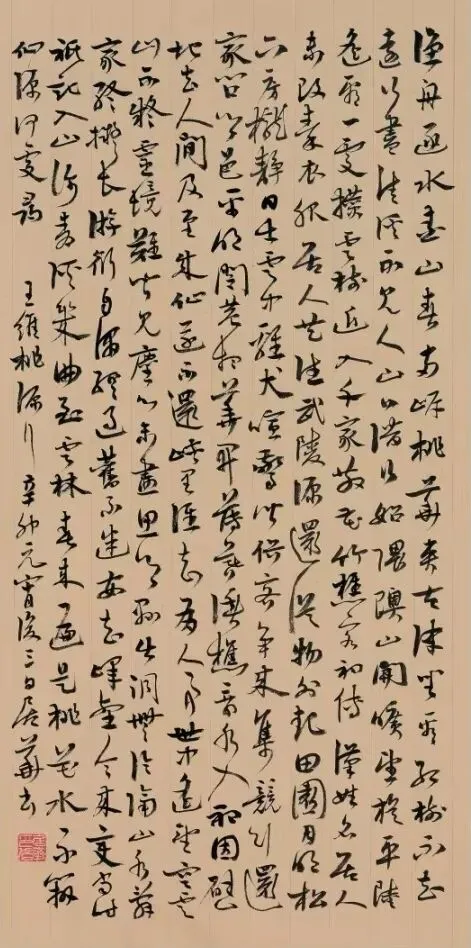 漁舟逐水愛山春兩岸桃華夾古津坐看紅樹不知
遠行盡清溪不見人山口潛行始隈隩山開曠望旋平陸
遙看一處攢雲樹近入千家散花竹樵客初傳漢姓名居人
未改秦衣服居人共住武陵源還從物外起田園月明松
下房櫳靜日出雲中雞犬喧驚聞俗客爭來集競引還
家問都邑平明閭巷掃華開薄暮漁樵乘水入初因避
地去人間及至成仙遂不還峽里誰知有人事世中遙望空雲
山不疑靈境難聞見塵心未盡思鄉縣出洞無論隔山水辭
家終擬長游衍自謂經過舊不迷安知峰壑今來變當時
祇記入山深青溪幾曲到雲林春來遍是桃花水不辨
仙源何處尋 王維桃源行 辛卯元宵後三日居華書